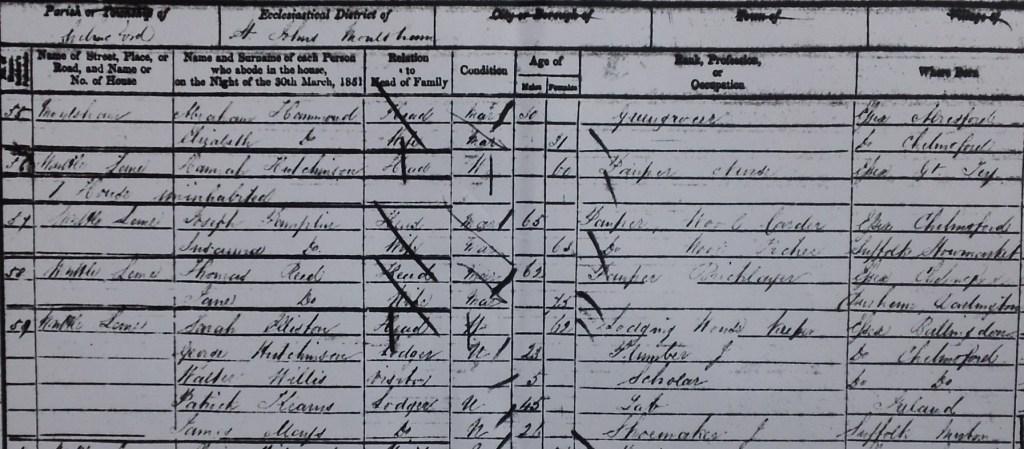 Parish or Township of Ecclesiastical District of City or Borough of Town of Village of
Chelmsford St Johns Moulsham
Name of Street, Place, or Road, and Name or No. of House Name and Surname of each Person who abode in the house, on the Night of the 30th March, 1851 Relation to Head of Family Condition Age of Males Females Rank, Profession, or Occupation Where Born
55 Moulsham Abraham Hammond Head Mar 50 Greengrocer Essex
Elizabeth Do Wife Mar 51 Do Chelmsford
56 Lane Hannah Hutchinson Head W 60 Pauper Nurse Essex Gt Tey
1 House uninhabited
57 Lane Joseph Head Mar 65 Pauper Essex Chelmsford
Susanna Do Wife Mar 63 Do Suffolk Stowmarket
58 Lane Thomas Reed Head Mar 62 Pauper Bricklayer Essex Chelmsford
Jane Do Wife Mar 75 Durham Darlington
59 Lane Sarah Head W 62 Lodging House Keeper Essex Ballingdon
George Hutchinson Lodger U 23 Plumber J Do Chelmsford
Walter Willis Visitor 5 Scholar Do Do
Patrick Kearns Lodger U 45 Lab Ireland
James Do U 21 Shoemaker J Suffolk